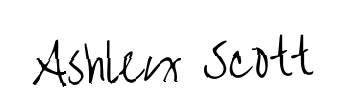 Ashlen Scott